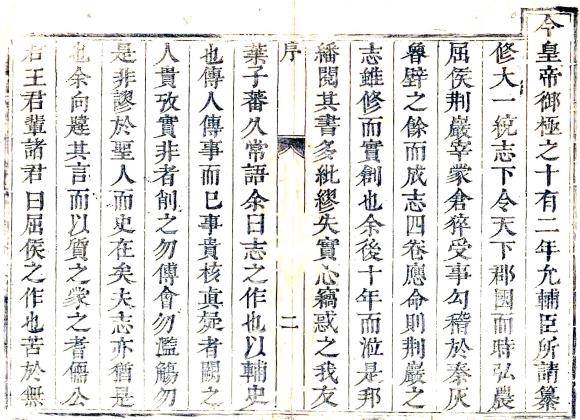 今皇帝御極之十有二年允輔臣所請纂
修大一統志下令天下郡國而時弘農
屈侯荆巖宰蒙倉猝受事勾稽於秦灰
魯壁之餘而成志四卷應命則荆巖之
志雖修而實創也余後十年而涖是邦
繙閱其書多紕繆失實心竊惑之我友
序 二
葉子蕃久常語余曰志之作也以輔史
也傳人傳事而已事貴核真疑者闕之
人貴攷實非者削之勿傅會勿濫觴勿
是非謬於聖人而史在矣夫志亦猶是
也余向韙其言而以質之蒙之耆儒公
王君輩諸君曰屈侯之作也苦於無